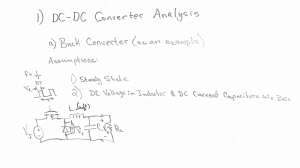 1) DC-DC Converter Analysis
a) Buck Converter (as an example)
Assumptions:
1) Steady State
2) DC Voltage in Inductor & DC Current Capacitors are Zero